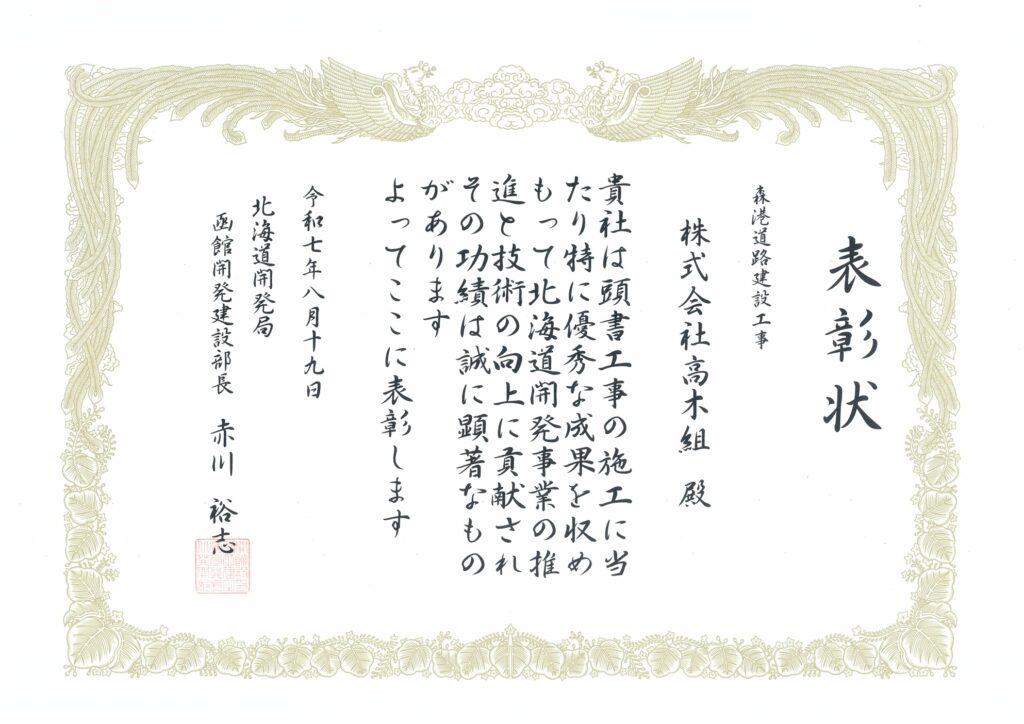 表彰状
森港道路建設工事
株式会社高木組 殿
貴社は頭書工事の施工に当
たり特に優秀な成果を収め
もって北海道開発事業の推
進と技術の向上に貢献され
その功績は誠に顕著なもの
があります
よってここに表彰します
令和七年八月十九日
北海道開発局
函館開発建設部長 赤川 裕志